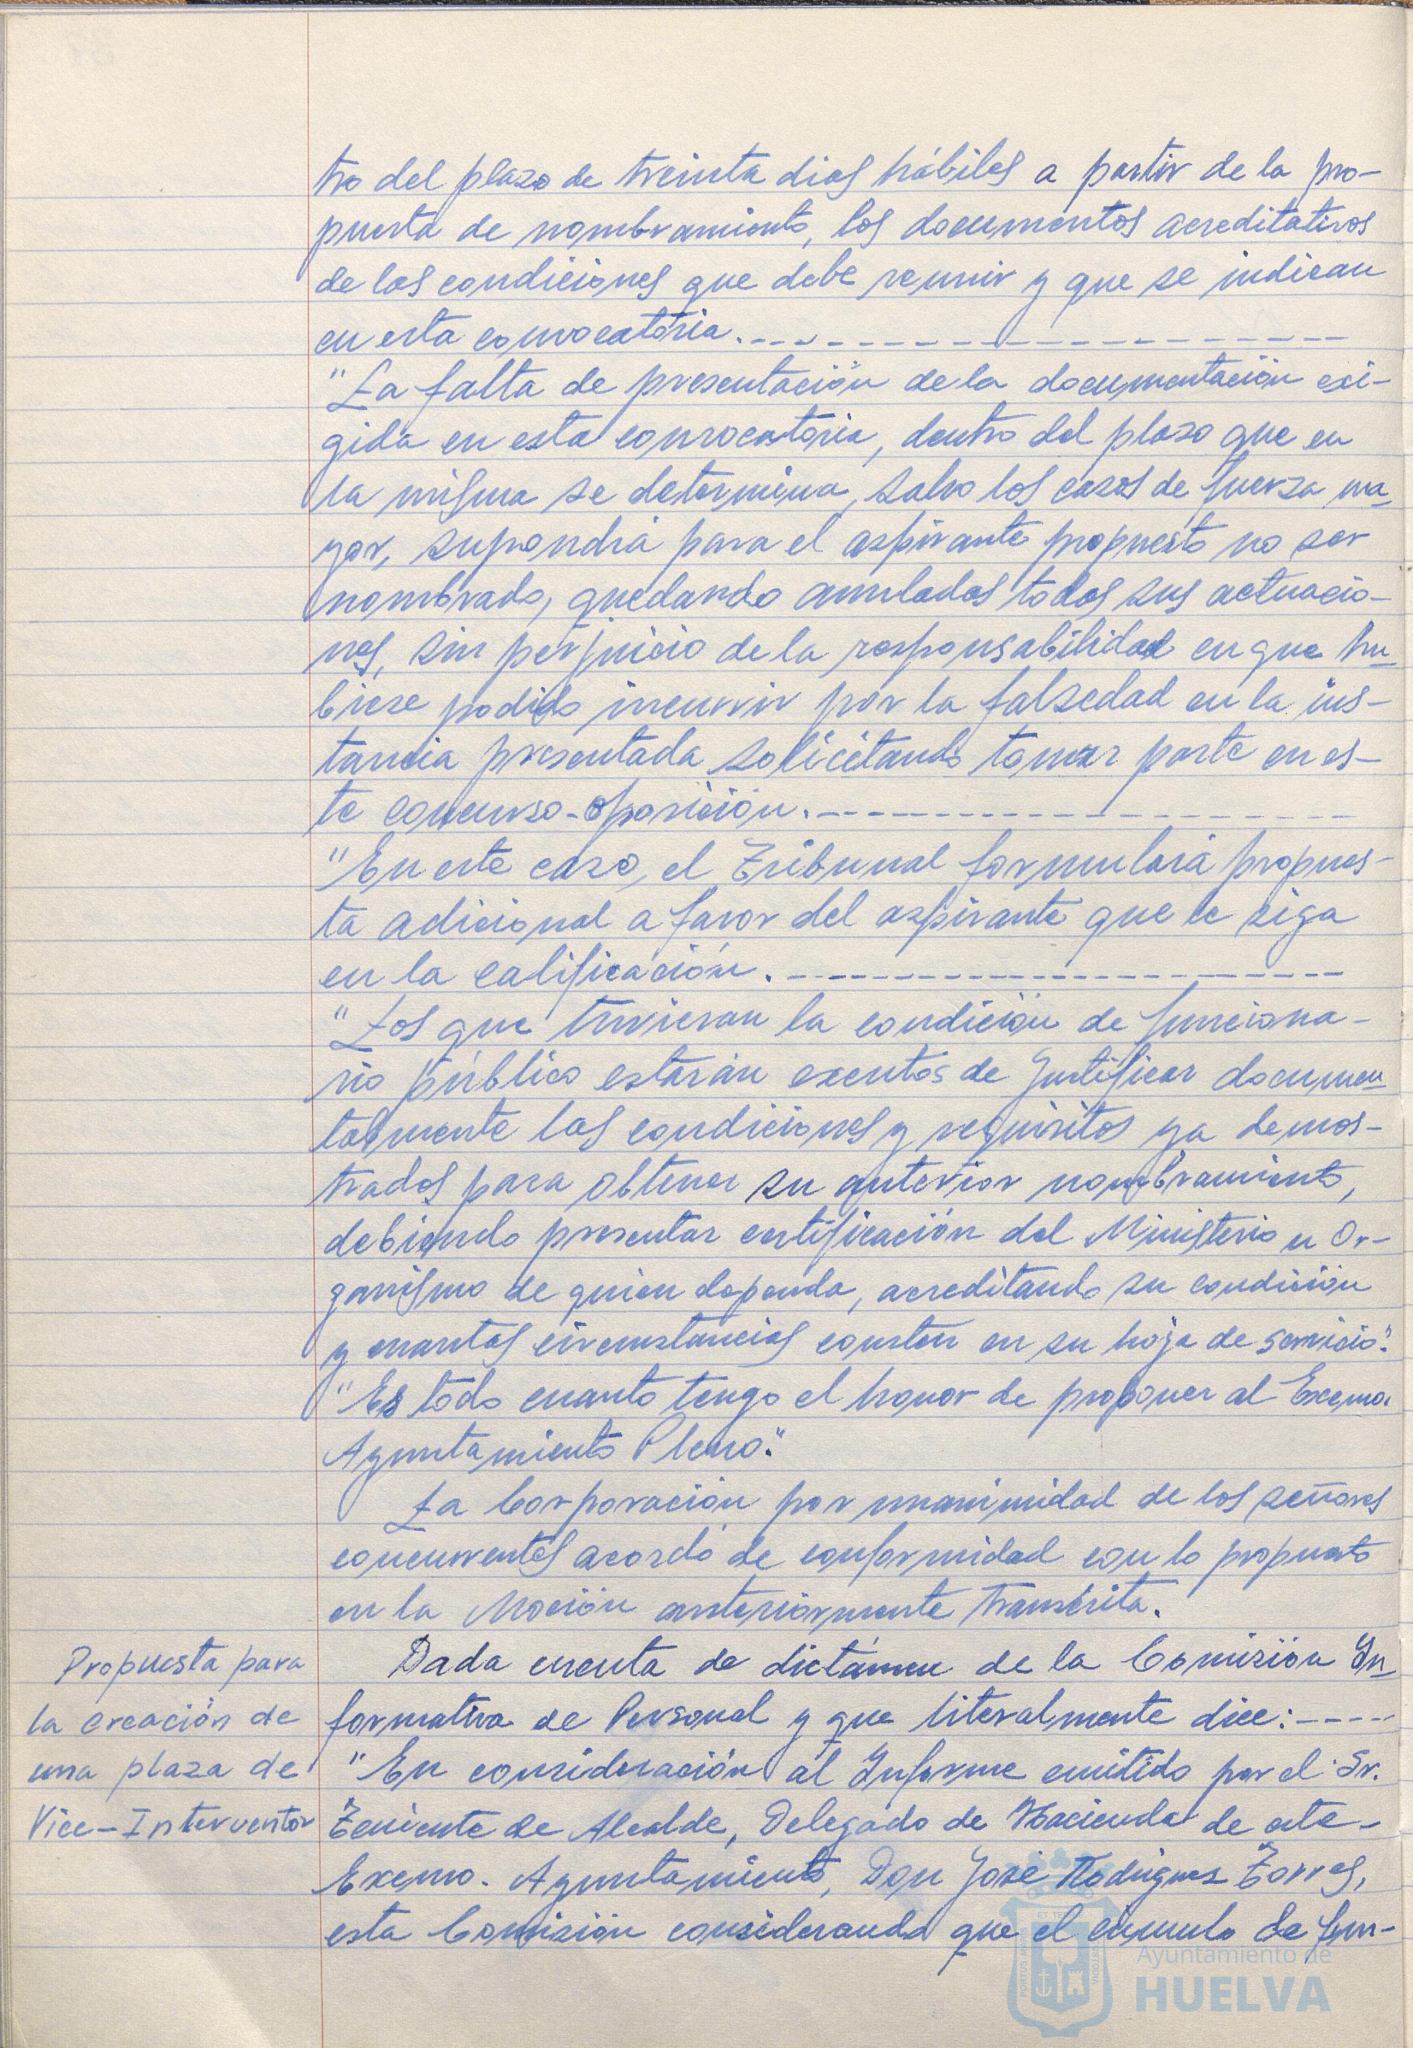 tro del plazo de treinta dias hábiles a partir de la pro-
puesta de nombramiento, los documentos acreditativos
de las condiciones que debe reunir y que se indican
en esta convocatoria.
"La falta de presentación de la documentación exi-
gida en esta convocatoria, dentro del plazo que en
la misma se determina, salvo los casos de fuerza ma-
yor, supondrá para el aspirante propuesto no ser
nombrado, quedando anuladas todas sus actuacio-
nes, sin perjuicio de la responsabilidad en que hu-
biese podido incurrir por la falsedad en la ins-
tancia presentada solicitando tomar parte en es-
te concurso-oposición.
"En este caso, el Tribunal formulará propues-
ta adicional a favor del aspirante que le siga
en la calificación.
"Los que tuvieran la condición de funciona-
rio público estarán exentos de justificar documen-
talmente las condiciones y requisitos ya demos-
trados para obtener su anterior nombramiento,
debiendo presentar certificación del Ministerio u Or-
ganismo de quien dependa, acreditando su condición
y cuantas circunstancias consten en su hoja de servicio".
"Es todo cuanto tengo el honor de proponer al Excmo.
Ayuntamiento Pleno".
La Corporación por unanimidad de los señores
concurrentes acordó de conformidad con lo propuesto
en la Moción anteriormente transcrita.
Propuesta para
la creación de
una plaza de
Vice-Interventor
Dada cuenta de dictámen de la Comisión In-
formativa de Personal y que literalmente dice:
"En consideración al Informe emitido por el Sr.
Teniente de Alcalde, Delegado de Hacienda de este
Excmo. Ayuntamiento, Don José Rodríguez Torres,
esta Comisión considerando que el cúmulo de fun-
Ayuntamiento de
HUELVA